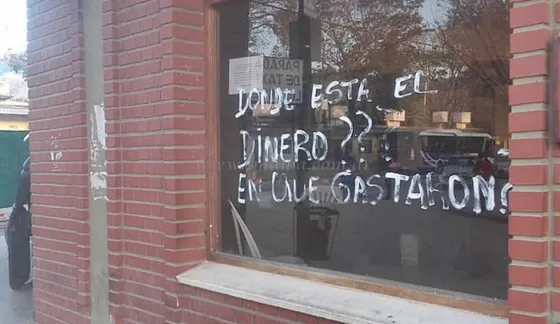 PARAD
DE TAX
DONDE ESTA EL
DINERO ??
EN QUE GASTARON!